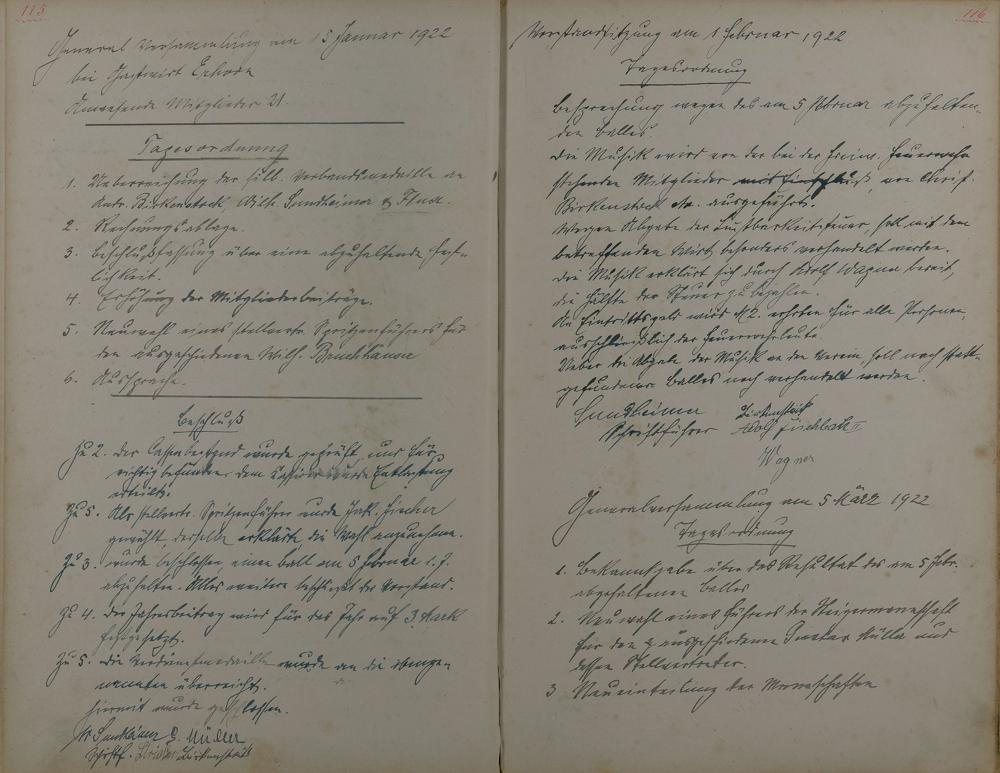 115
General Versammlung am 15 Januar 1922
bei Gastwirt Ephorn
Anwesende Mitglieder 21.
Tagesordnung
1. Ueberreichung der silb. Verbandsmedaille an
Andr. Birkenstock, Wilh. Sundheimer &
2. Rechnungsablage.
3. Beschlußfassung über eine abzuhaltende Fest-
lichkeit.
4. Erhöhung der Mitgliederbeiträge.
5. Neuwahl eines stellvertr. Spritzenführers für
den ausgeschiedenen Wilh.
6. Aussprache.
Beschluß
Zu 2. Der Cassenbestand wurde geprüft und für
richtig befunden dem Cassier wurde Entlastung
erteilt.
Zu 5. Als stellvertr. Spritzenführer wurde Jak. Fischer
gewählt, derselbe erklärte die Wahl anzunehmen.
Zu 3. wurde beschlossen einen Ball am 5 Februar d. J.
abzuhalten. Alles weitere beschließt der Vorstand.
Zu 4. Der Jahresbeitrag wird für das Jahr auf 3 Mark
festgesetzt.
Zu 5. Die Verdienstmedaille wurde an die obenge-
nannten überreicht.
Hiermit wurde geschlossen.
W Sundheimer Müller
Schriftf. Birkenstock
116
Vorstandssitzung am 1 Februar 1922
Tagesordnung
Besprechung wegen des am 5 Februar abzuhalten-
den Balles.
Die Musik wird von der bei der freiw. Feuerwehr
stehenden Mitglieder von Christ.
Birkenstock ausgeführt.
Wegen Abgabe der Lustbarkeitssteuer, soll mit dem
betreffenden Wirt besonders verhandelt werden.
Die Musik erklärt sich durch Adolf Wagner bereit,
die Hälfte der Steuer zu bezahlen.
An Eintrittsgeld wird M 2. erhoben für alle Personen,
ausschließlich der Feuerwehrleute.
Ueber die Abgabe der Musik an den Verein, soll nach statt-
gefundenen Balles noch verhandelt werden.
Sundheimer Birkenstock
Schriftführer Adolf Fischbach II
Wagner
Generalversammlung am 5 März 1922
Tagesordnung
1. Bekanntgabe über das Resultat des am 5 Febr.
abgehaltenen Balles
2. Neuwahl eines Führers der Steigermannschaft
für den ausgeschiedenen Müller und
dessen Stellvertreter.
3 Neueinteilung der Mannschaften